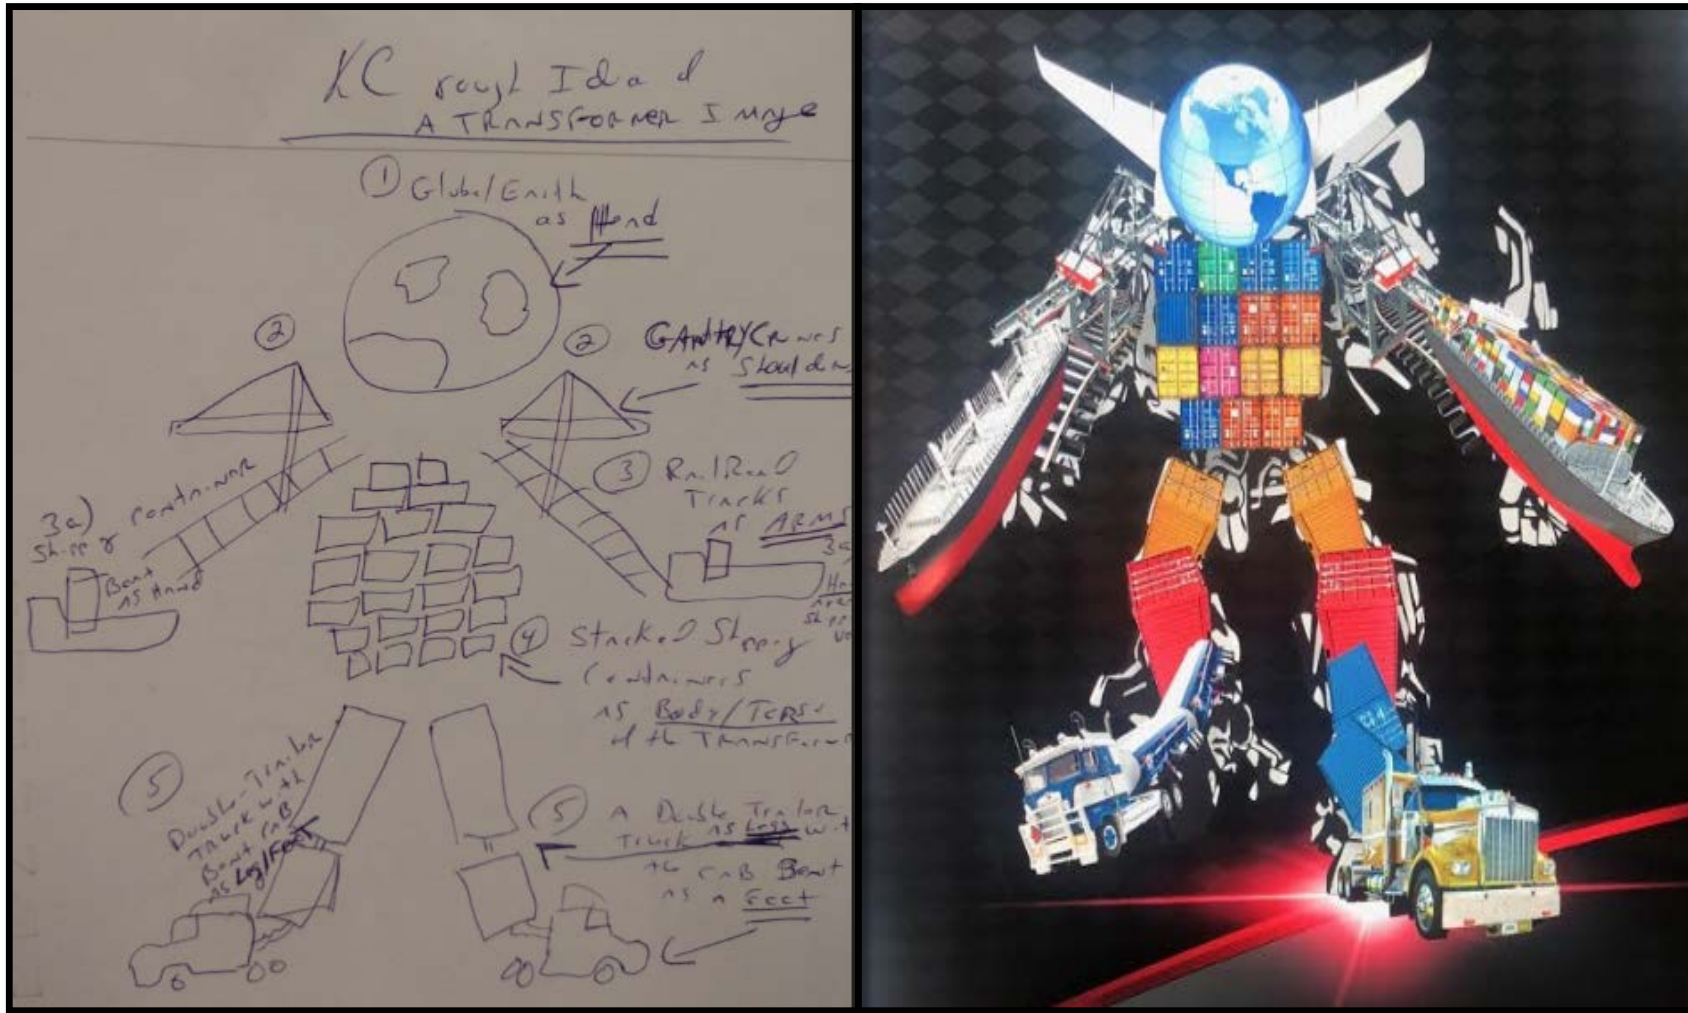 KC rough Idea of
A TRANSFORMER Image
① Globe/Earth
as Head
②
②
GANTRY/Cranes
as Shoulders
③ RailRoad
Tracks
as ARMS
3a)
Shipping container
Boat
as Hand
3a
④ Stacked Shipping
Containers
as Body/Torso
of the TRANSFormer
⑤
Double-Trailer
Truck with
Bent cAB
as Leg/Feet
⑤ A Double Trailer
Truck as Legs
the cAB Bent
as a Feet